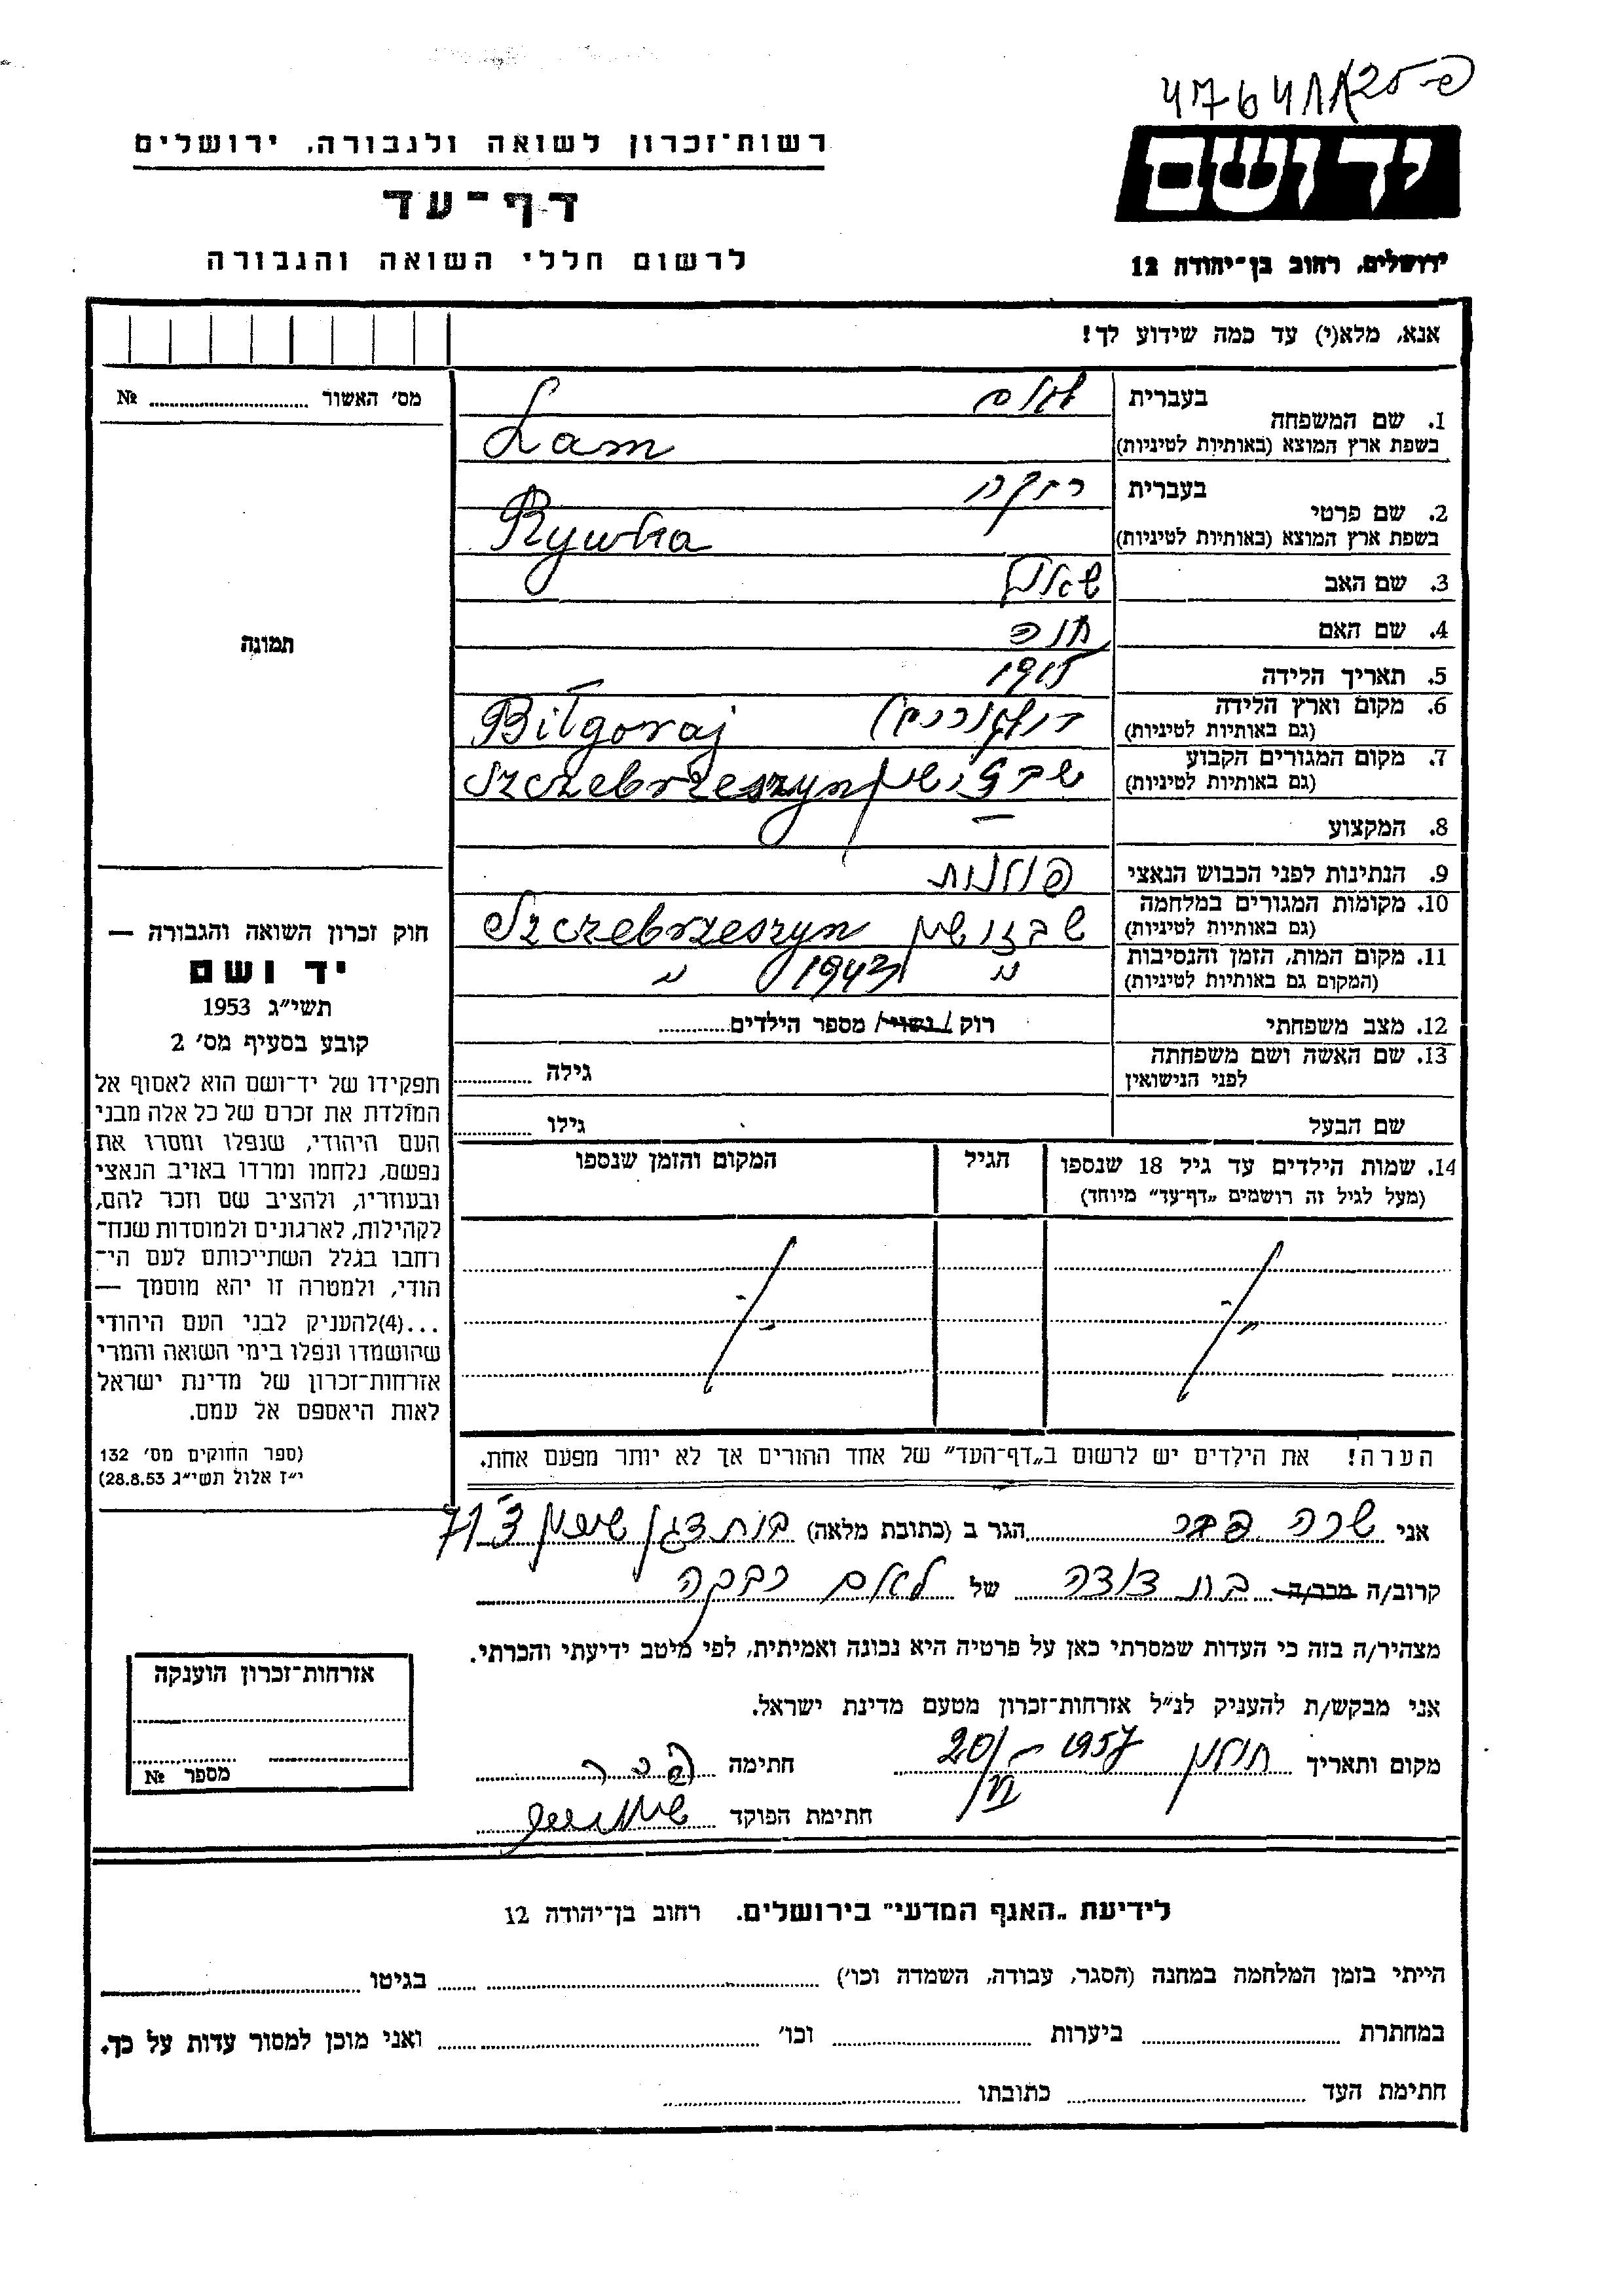 רשות־זכרון לשואה ולגבורה, ירושלים
דף־עד
לרשום חללי השואה והגבורה
יד ושם
ירושלים, רחוב בן־יהודה 12
אנא, מלא(י) עד כמה שידוע לך!
מס׳ האשור № ........
תמונה
1. שם המשפחה בעברית לאם
בשפת ארץ המוצא (באותיות לטיניות) Lam
2. שם פרטי בעברית רבקה
בשפת ארץ המוצא (באותיות לטיניות) Rywka
3. שם האב
4. שם האם חנה
5. תאריך הלידה 1915
6. מקום וארץ הלידה Biłgoraj
(גם באותיות לטיניות)
7. מקום המגורים הקבוע Szczebrzeszyn
(גם באותיות לטיניות)
8. המקצוע —
9. הנתינות לפני הכבוש הנאצי פולנית
10. מקומות המגורים במלחמה Szczebrzeszyn
(גם באותיות לטיניות)
11. מקום המות, הזמן והנסיבות " 1943 "
(המקום גם באותיות לטיניות)
12. מצב משפחתי רוק / נשוי / מספר הילדים........
13. שם האשה ושם משפחתה גילה ........
לפני הנישואין
שם הבעל גילו ........
14. שמות הילדים עד גיל 18 שנספו הגיל המקום והזמן שנספו
(מעל לגיל זה רושמים „דף־עד״ מיוחד)
הערה! את הילדים יש לרשום ב„דף־העד״ של אחד ההורים אך לא יותר מפעם אחת.
חוק זכרון השואה והגבורה —
יד ושם
תשי״ג 1953
קובע בסעיף מס׳ 2
תפקידו של יד־ושם הוא לאסוף אל
המולדת את זכרם של כל אלה מבני
העם היהודי, שנפלו ומסרו את
נפשם, נלחמו ומרדו באויב הנאצי
ובעוזריו, ולהציב שם וזכר להם,
לקהילות, לארגונים ולמוסדות שנח־
רחבו בגלל השתייכותם לעם הי־
הודי, ולמטרה זו יהא מוסמך —
...(4)להעניק לבני העם היהודי
שהושמדו ונפלו בימי השואה והמרי
אזרחות־זכרון של מדינת ישראל
לאות היאספם אל עמם.
(ספר החוקים מס׳ 132
י״ז אלול תשי״ג 28.8.53)
אני שרה הגר ב (כתובת מלאה) בית דגן שיכון
קרוב/ה מכר/ה בת דודה של לאם רבקה
מצהיר/ה בזה כי העדות שמסרתי כאן על פרטיה היא נכונה ואמיתית, לפי מיטב ידיעתי והכרתי.
אני מבקש/ת להעניק לנ״ל אזרחות־זכרון מטעם מדינת ישראל.
מקום ותאריך חולון 20/VI – 1957 חתימה
חתימת הפוקד
אזרחות־זכרון הוענקה
מספר №
לידיעת „האגף המדעי״ בירושלים. רחוב בן־יהודה 12
הייתי בזמן המלחמה במחנה (הסגר, עבודה, השמדה וכו׳) ........ בגיטו ........
במחתרת ........ ביערות ........ וכו׳ ........ ואני מוכן למסור עדות על כך.
חתימת העד ........ כתובתו ........